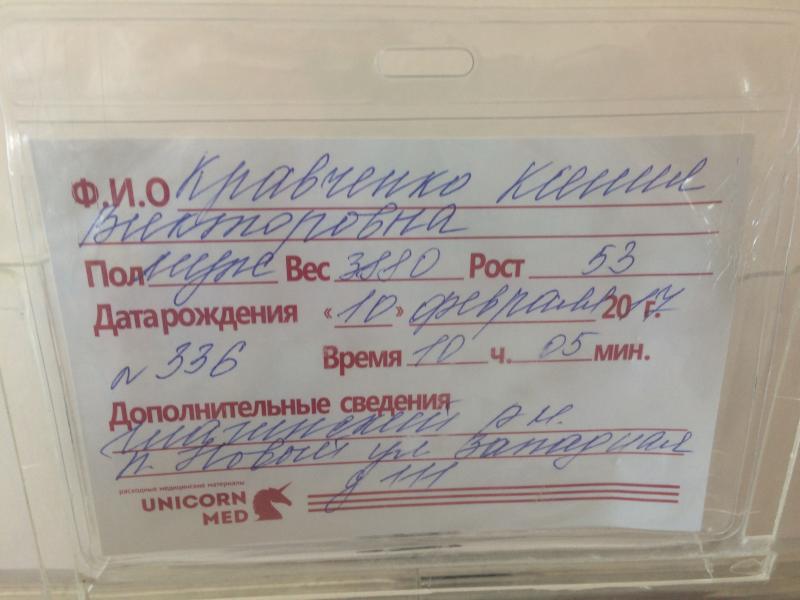 Ф.И.О Кравченко Ксения
Викторовна
Пол муж Вес 3880 Рост 53
Дата рождения «10» февраля 2017 г.
N 336 Время 10 ч. 05 мин.
Дополнительные сведения
р-н.
п. Новый ул Западная
д 111
расходные медицинские материалы
UNICORN
MED